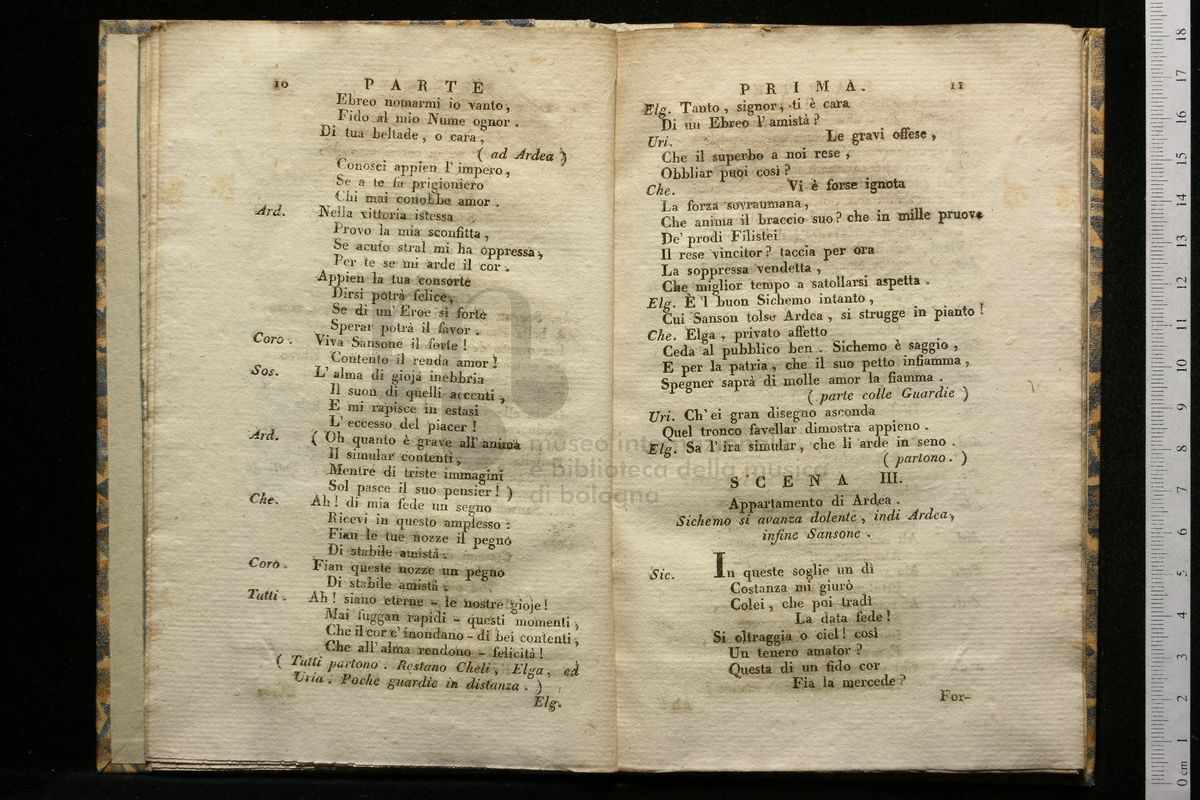 10 PARTE
Ebreo nomarmi io vanto,
Fido al mio Nume ognor.
Di tua beltade, o cara,
( ad Ardea )
Conosci appien l' impero,
Se a te fa prigioniero
Chi mai conobbe amor.
Ard. Nella vittoria istessa
Provo la mia sconfitta,
Se acuto stral mi ha oppressa,
Per te se mi arde il cor.
Appien la tua consorte
Dirsi potrà felice,
Se di un' Eroe sì forte
Sperar potrà il favor.
Coro. Viva Sansone il forte!
Contento il renda amor!
Sos. L' alma di gioja inebbria
Il suon di quelli accenti,
E mi rapisce in estasi
L' eccesso del piacer!
Ard. ( Oh quanto è grave all' anima
Il simular contenti,
Mentre di triste immagini
Sol pasce il suo pensier! )
Che. Ah! di mia fede un segno
Ricevi in questo amplesso:
Fian le tue nozze il pegno
Di stabile amistà.
Coro. Fian queste nozze un pegno
Di stabile amistà.
Tutti. Ah! siano eterne - le nostre gioje!
Mai fuggan rapidi - questi momenti,
Che il cor c' inondano - di bei contenti,
Che all' alma rendono - felicità!
( Tutti partono. Restano Cheli, Elga, ed
Uria. Poche guardie in distanza. )
Elg.
PRIMA. 11
Elg. Tanto, signor, ti è cara
Di un Ebreo l' amistà?
Uri. Le gravi offese,
Che il superbo a noi rese,
Obbliar puoi così?
Che. Vi è forse ignota
La forza sovraumana,
Che anima il braccio suo? che in mille pruove
De' prodi Filistei
Il rese vincitor? taccia per ora
La soppressa vendetta,
Che miglior tempo a satollarsi aspetta.
Elg. E 'l buon Sichemo intanto,
Cui Sanson tolse Ardea, si strugge in pianto!
Che. Elga, privato affetto
Ceda al pubblico ben. Sichemo è saggio,
E per la patria, che il suo petto infiamma,
Spegner saprà di molle amor la fiamma.
( parte colle Guardie )
Uri. Ch' ei gran disegno asconda
Quel tronco favellar dimostra appieno.
Elg. Sa l' ira simular, che li arde in seno.
( partono. )
SCENA III.
Appartamento di Ardea.
Sichemo si avanza dolente, indi Ardea,
infine Sansone.
Sic. In queste soglie un dì
Costanza mi giurò
Colei, che poi tradì
La data fede!
Si oltraggia o ciel! così
Un tenero amator?
Questa di un fido cor
Fia la mercede?
For-
museo internazionale
e biblioteca della musica
di bologna
0 cm 1 2 3 4 5 6 7 8 9 10 11 12 13 14 15 16 17 18